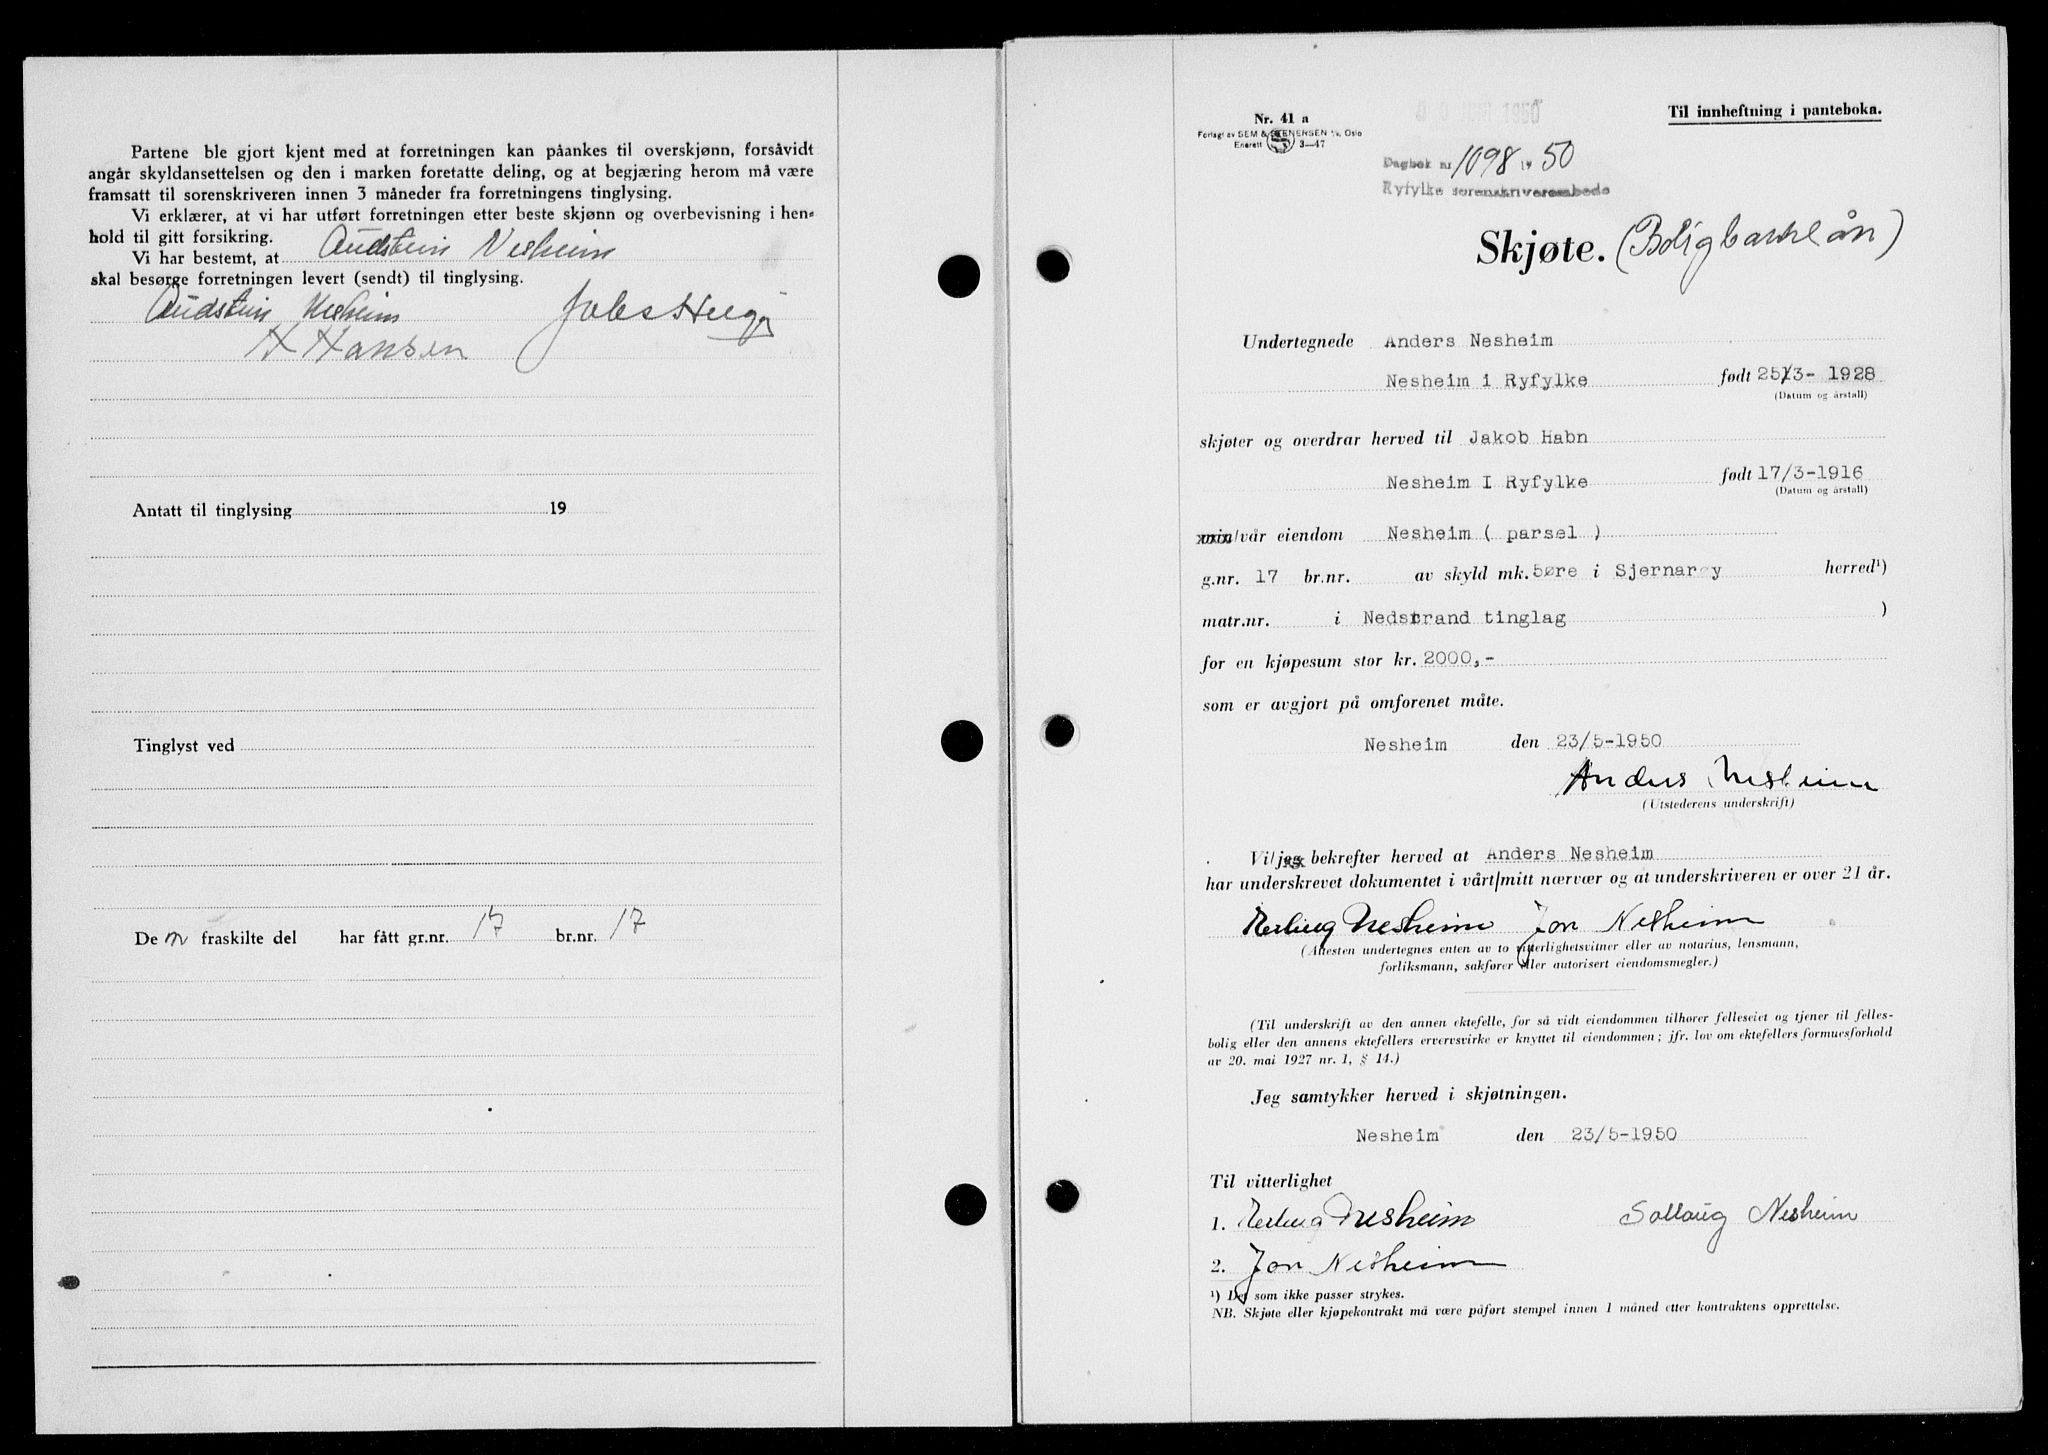 Partene ble gjort kjent med at forretningen kan påankes til overskjønn, forsåvidt
angår skyldansettelsen og den i marken foretatte deling, og at begjæring herom må være
framsatt til sorenskriveren innen 3 måneder fra forretningens tinglysing.
Vi erklærer, at vi har utført forretningen etter beste skjønn og overbevisning i hen-
hold til gitt forsikring.
Vi har bestemt, at Audstein Nesheim
skal besørge forretningen levert (sendt) til tinglysing.
Audstein Nesheim
H Hansen
Antatt til tinglysing 19
Tinglyst ved
De n fraskilte del har fått gr.nr. 17 br.nr. 17
Nr. 41 a
Forlagt av SEM & STENERSEN A/S, Oslo
Enerett 3—47
1950
Til innheftning i panteboka.
Dagbok nr 1098 19 50
Ryfylke sorenskriverembede
Skjøte. (Boligbanklån)
Undertegnede Anders Nesheim
Nesheim i Ryfylke født 25/3- 1928
(Datum og årstall)
skjøter og overdrar herved til Jakob Habn
Nesheim I Ryfylke født 17/3-1916
(Datum og årstall)
min/vår eiendom Nesheim ( parsel )
g.nr. 17 br.nr. av skyld mk. 5øre i Sjernarøy herred¹)
matr.nr. i Nedstrand tinglag )
for en kjøpesum stor kr. 2000,-
som er avgjort på omforenet måte.
Nesheim den 23/5-1950
Anders Nesheim
(Utstederens underskrift)
Vi/jeg bekrefter herved at Anders Nesheim
har underskrevet dokumentet i vårt/mitt nærvær og at underskriveren er over 21 år.
Nesheim Jon Nesheim
(Attesten undertegnes enten av to vitterlighetsvitner eller av notarius, lensmann,
forliksmann, sakfører eller autorisert eiendomsmegler.)
(Til underskrift av den annen ektefelle, for så vidt eiendommen tilhører felleseiet og tjener til felles-
bolig eller den annens ektefellers ervervsvirke er knyttet til eiendommen; jfr. lov om ektefellers formuesforhold
av 20. mai 1927 nr. 1, § 14.)
Jeg samtykker herved i skjøtningen.
Nesheim den 23/5-1950
Til vitterlighet
1. Nesheim Sollaug Nesheim
2. Jon Nesheim
¹) Det som ikke passer strykes.
NB. Skjøte eller kjøpekontrakt må være påført stempel innen 1 måned etter kontraktens opprettelse.